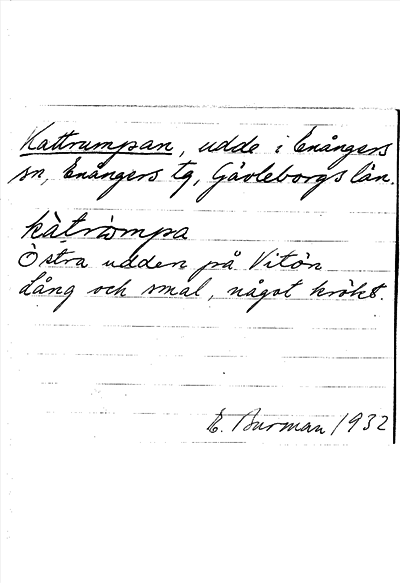 Kattrumpan, udde i Enångers
sn, Enångers tg, Gävleborgs län.
kàtrùmpa
Östra udden på Vitön
Lång och smal, något krökt.
E. Burman 1932